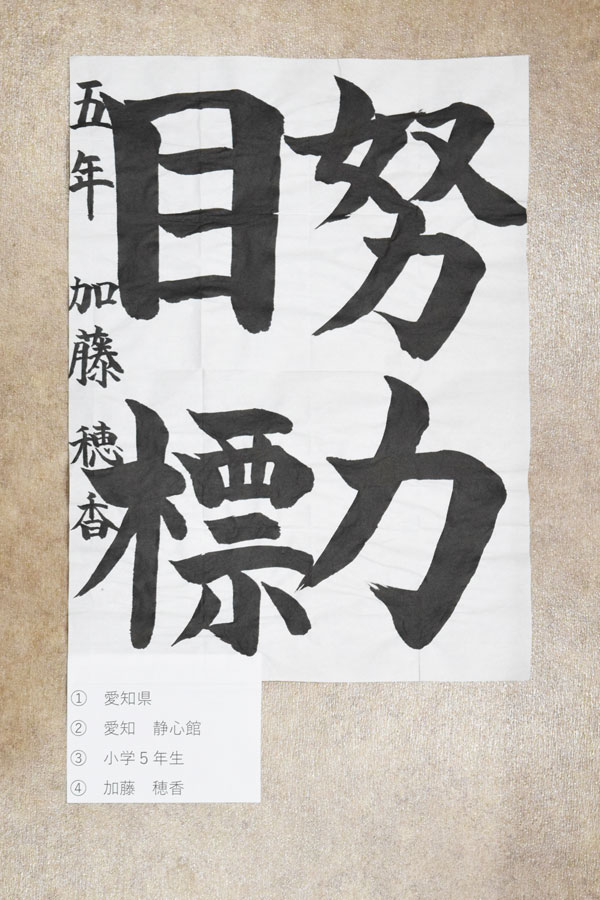 努力
目標
五年 加藤 穂香
① 愛知県
② 愛知 静心館
③ 小学5年生
④ 加藤 穂香